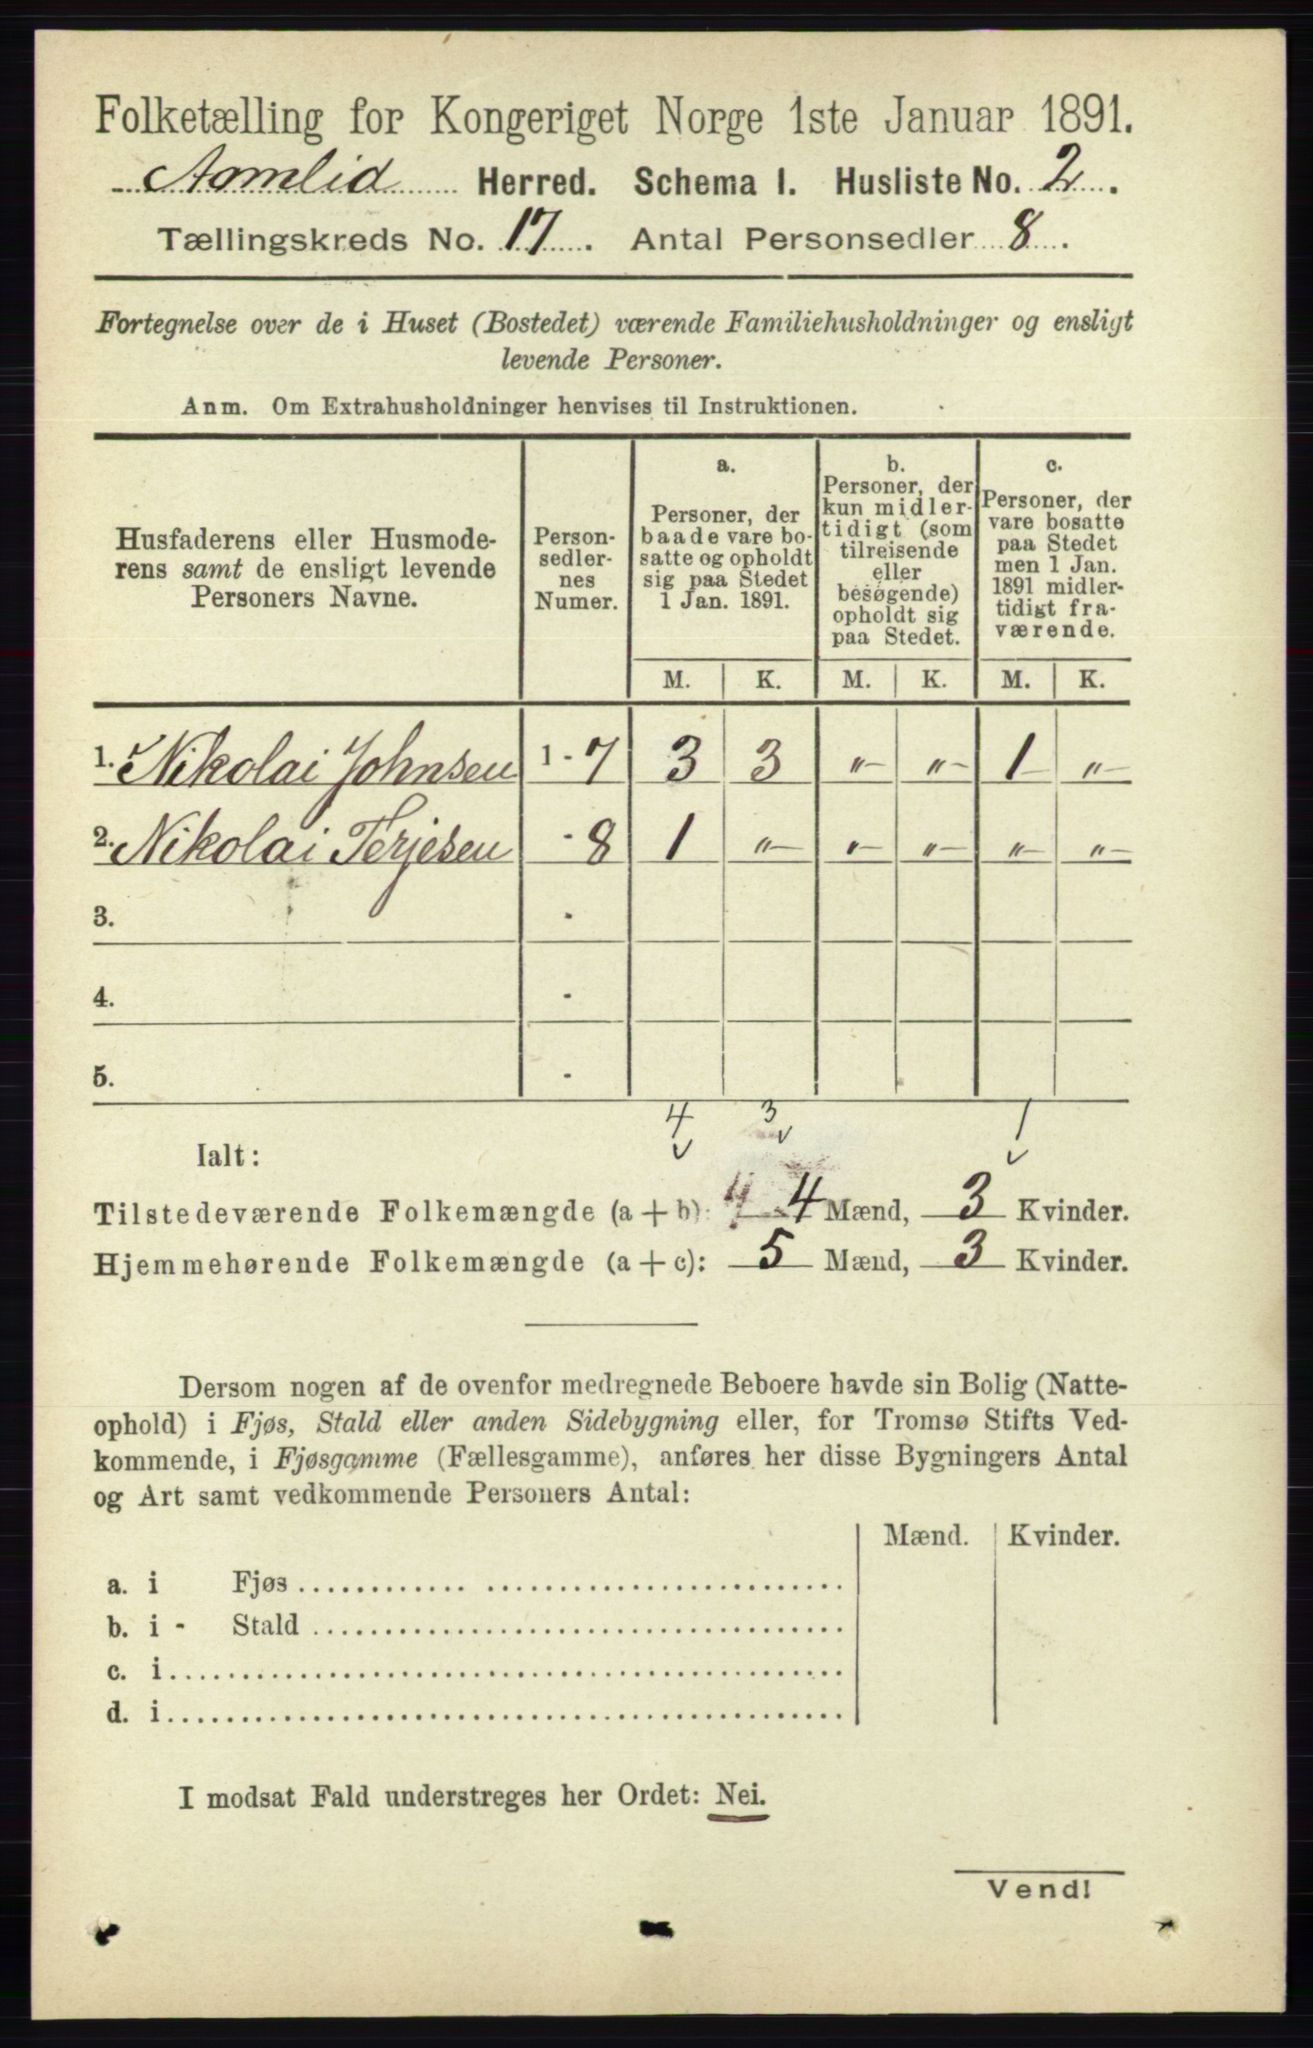 Folketælling for Kongeriget Norge 1ste Januar 1891.
Aamlid Herred. Schema I. Husliste No. 2.
Tællingskreds No. 17. Antal Personsedler 8.
Fortegnelse over de i Huset (Bostedet) værende Familiehusholdninger og ensligt
levende Personer.
Anm. Om Extrahusholdninger henvises til Instruktionen.
Husfaderens eller Husmode-
rens samt de ensligt levende
Personers Navne.
Person-
sedler-
nes
Numer.
a.
Personer, der
baade vare bo-
satte og opholdt
sig paa Stedet
1 Jan. 1891.
b.
Personer, der
kun midler-
tidigt (som
tilreisende
eller
besøgende)
opholdt sig
paa Stedet.
c.
Personer, der
vare bosatte
paa Stedet
men 1 Jan.
1891 midler-
tidigt fra-
værende.
M. K. M. K. M. K.
1. Nikolai Johnsen 1 - 7 3 3 „ „ 1 „
2. Nikolai Terjesen - 8 1 „ „ „ „ „
3. -
4. -
5. -
4 3 1
Ialt:
Tilstedeværende Folkemængde (a + b): 4 4 Mænd, 3 Kvinder.
Hjemmehørende Folkemængde (a + c): 5 Mænd, 3 Kvinder.
Dersom nogen af de ovenfor medregnede Beboere havde sin Bolig (Natte-
ophold) i Fjøs, Stald eller anden Sidebygning eller, for Tromsø Stifts Ved-
kommende, i Fjøsgamme (Fællesgamme), anføres her disse Bygningers Antal
og Art samt vedkommende Personers Antal:
Mænd. Kvinder.
a. i Fjøs
b. i - Stald
c. i
d. i
I modsat Fald understreges her Ordet: Nei.
Vend!